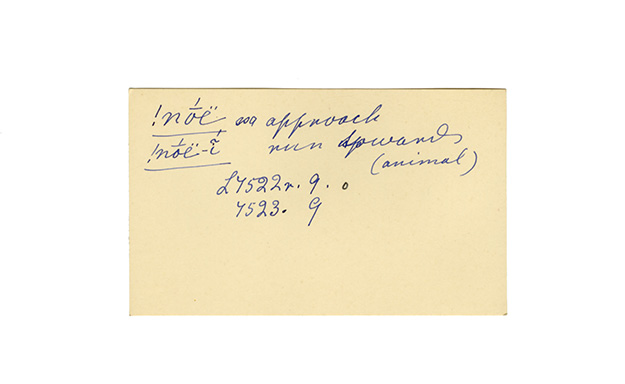 !nóë approach
!nóë-ĩ run upwards
(animal)
L7522r. 9.
7523. 9